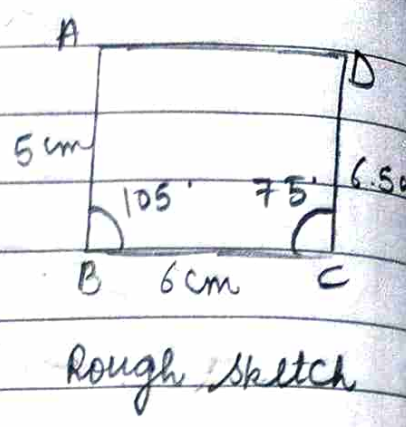 A
D
5 cm
105°
75°
6.5
B
6 cm
C
Rough sketch